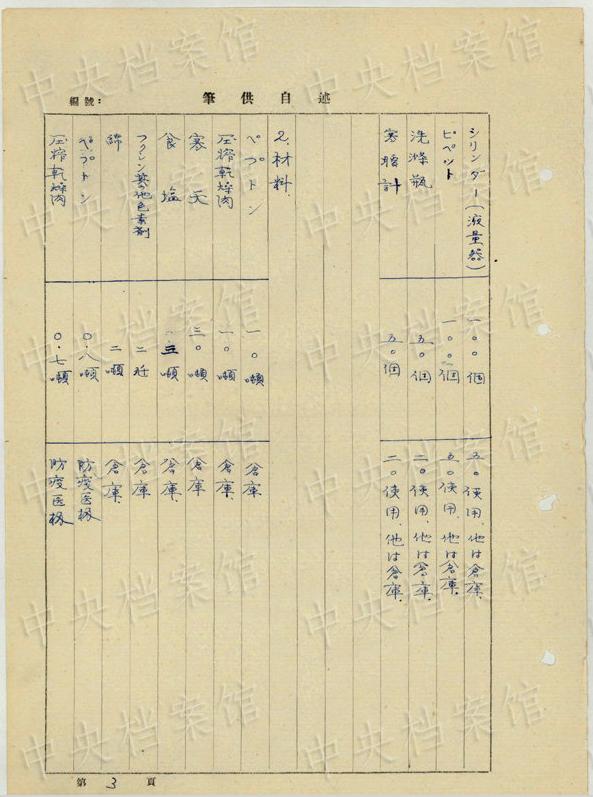 筆供自述
編號:
シリンダー(液量器) 一〇〇個 五〇使用、他は倉庫、
ピペット 一〇〇個 五〇使用、他は倉庫、
洗滌瓶 五〇個 二〇使用、他は倉庫、
寒暖計 五〇個 二〇使用、他は倉庫、
2.材料.
ペプトン 一〇噸 倉庫
圧搾乾燥肉 一〇噸 倉庫
寒天 三〇噸 倉庫
食塩 三噸 倉庫
フクシン其他色素剤 二瓩 倉庫
綿 二噸 倉庫
ペプトン 〇.八噸 防疫医
圧搾乾燥肉 〇.七噸 防疫医
第3頁
中央档案馆